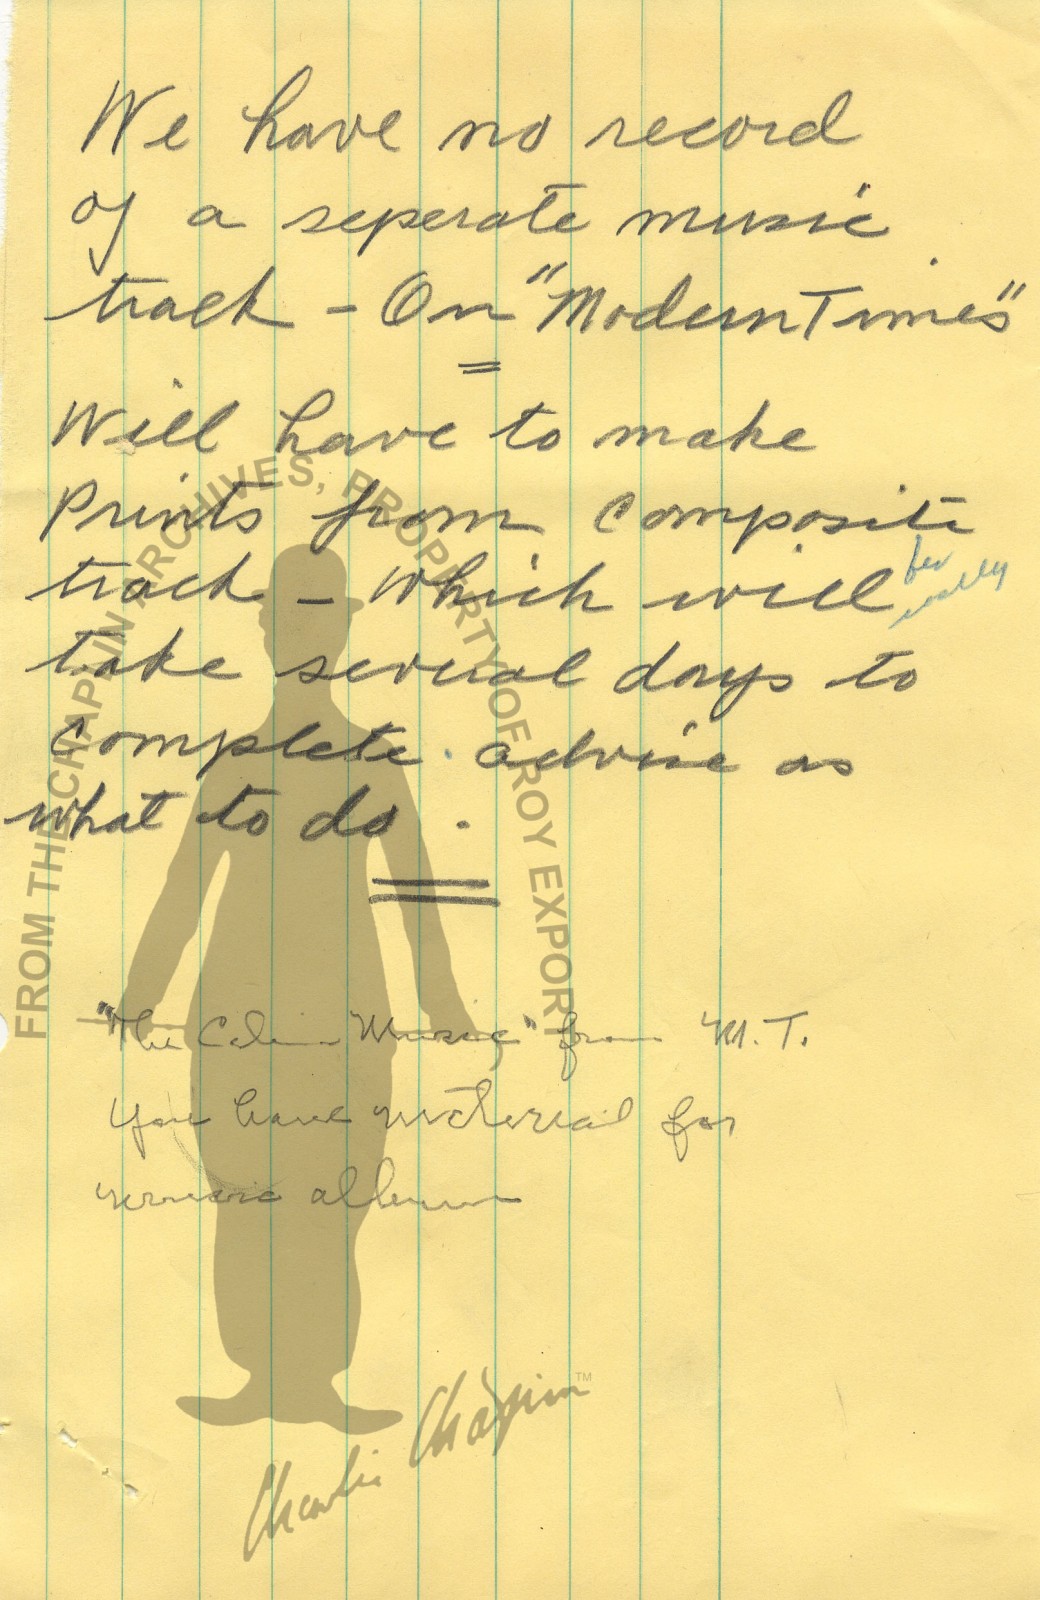 We have no record
of a seperate music
track - On "Modern Times"
Will have to make
Prints from composite
track - which will
take several days to
complete. advise as
what to do.
"The Music" from M.T.
You have material for
music album
FROM THE CHAPLIN ARCHIVES, PROPERTY OF ROY EXPORT
Charlie Chaplin™